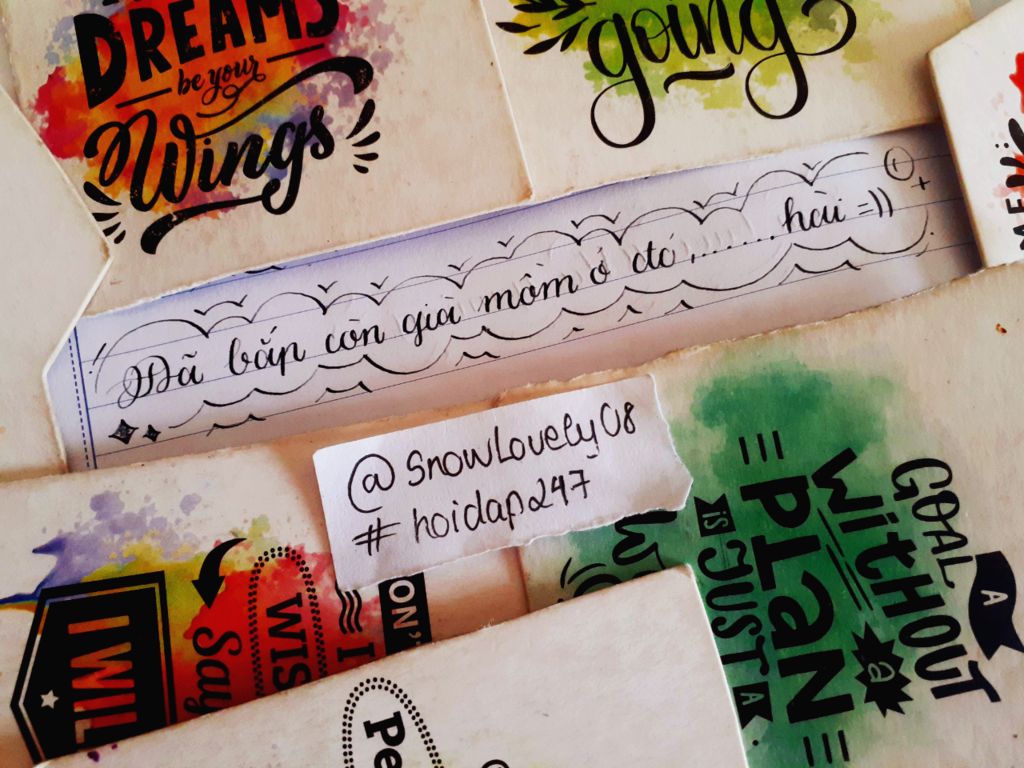 DREAMS
be your
Wings
going
Đã bắp còn giả mồm ở đó,......hài =))
@SnowLovely08
#hoidap247
GOAL
A
WiTHOUT
a
PLaN
iS JUST A
I WIL
Say
WIS
I
ON'
Pe